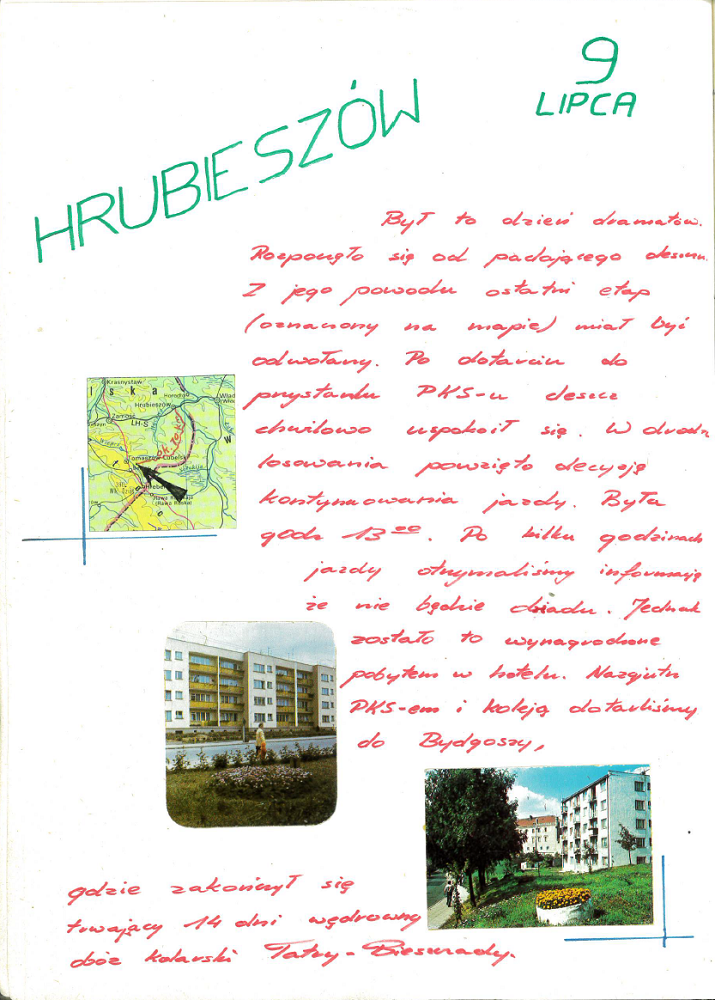 9
LIPCA
HRUBIESZÓW
Był to dzień dramatów.
Rozpoczęło się od padającego deszczu.
Z jego powodu ostatni etap
(oznaczony na mapie) miał być
odwołany. Po dotarciu do
przystanku PKS-u deszcz
chwilowo uspokoił się. W drodze
losowania powzięto decyzję
kontynuowania jazdy. Była
godz 13 00. Po kilku godzinach
jazdy otrzymaliśmy informację
że nie będzie obiadu. Jednak
zostało to wynagrodzone
pobytem w hotelu. Nazajutrz
PKS-em i koleją dotarliśmy
do Bydgoszczy,
gdzie zakończył się
trwający 14 dni wędrowny
obóz kolarski Tatry-Bieszczady.
Krasnystaw
lska
Horodło
Hrubieszów
Zamość
LH-S
Tomaszów Lubelski
(Rawa Ruska)